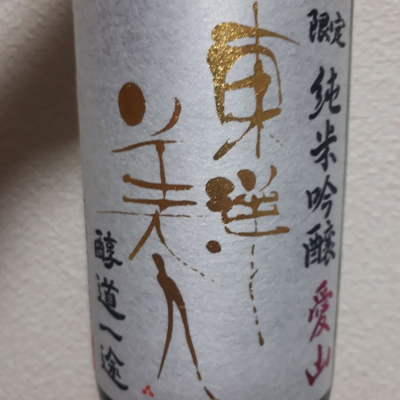 限定 純米吟醸 愛山
東洋
美人
醇道一途